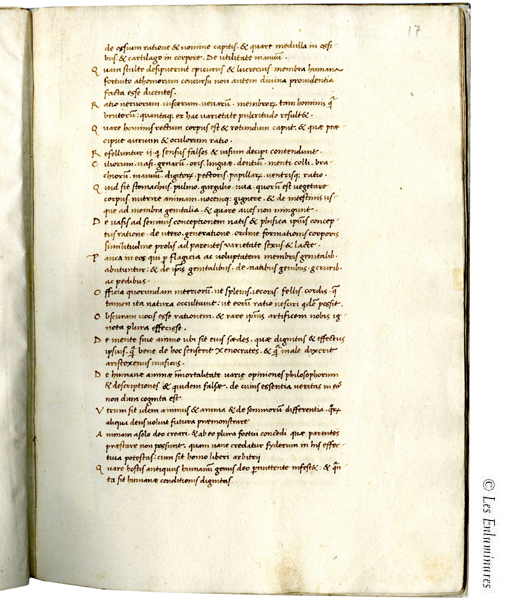 17
de ossium ratione & nomine capitis. & quare medulla in ossi
bus. & cartilago in corpore. De utilitate manuū.
Quam stulte desipuerint epicurus & lucrecius membra humana
fortuito athomorum concursu non autem divina providentia
facta esse dicentes.
Ratio nervorum viscerum. venarū. membroꝝ. tam hominis q̃
brutorū: quantaq; ex hac varietate pulcritudo resultet.
Quare hominis rectum corpus est & rotundum caput. & que præ
cipue aurium & oculorum ratio.
Refelluntur ii q̃ sensus falsos & visum decipi contendunt.
Ciliorum. nasi. genarū. oris. linguæ. dentiū. menti colli. bra
chiorū. manuū. digitoꝝ. pectoris. papillarꝝ. ventrisq; ratio.
Quid sit stomachus. pulmo. gurgilio. uuia. quorū est vegetare
corpus. nutrire animam. vocēq; gignere. & de intestinis us
que ad membra genitalia. & quare aves non mingunt.
De vasis ad seminis conceptionem natis & phisica ipsius concep
tus ratione. de utero. generatione. ordine formationis corporis
similitudine prolis ad parentes varietate sexus & lacte.
Pauca in eos qui p flagicia ac voluptatem membris genitalib.
abutuntur: & de ip̃is genitalibus. de natibus genibus. cruriib.
ac pedibus.
Officia quorundam interiorū. ut splenis. iecoris. fellis. cordis. q̃
tamen ita natura occultavit: ut eorū ratio nesciri qdē possit.
Obscuram vocis esse rationem. & rare ipsius artificem nobis ig
nota plura effecisse.
De mente sive animo ubi sit eius sædes. quæ dignitas & effectus
ipsius. q̃ bene de hoc senserit Xenocrates. & q̃ male dixerit
aristoxenus musicus.
De humanæ animæ imortalitate variæ opiniones philosophorum
& descriptiones & quidem falsæ. de cuius essentia veritas in eos
non dum cognita est
Utrum sit idem animus & anima & de seminorū differentia. q̃ꝝ
aliqua deus voluit futura præmonstrare
Animam a solo deo creari. & ab eo plura foetui concedi quæ parentes
præstare non possunt. quam vane creditur syderum in his effec
tiva potestas: cum sit homo liberi arbitrij
Quare hostis antiquus humanū genus deo pmittente infestet: & quā
ta sit humanæ conditionis dignitas.
© Les Enluminures